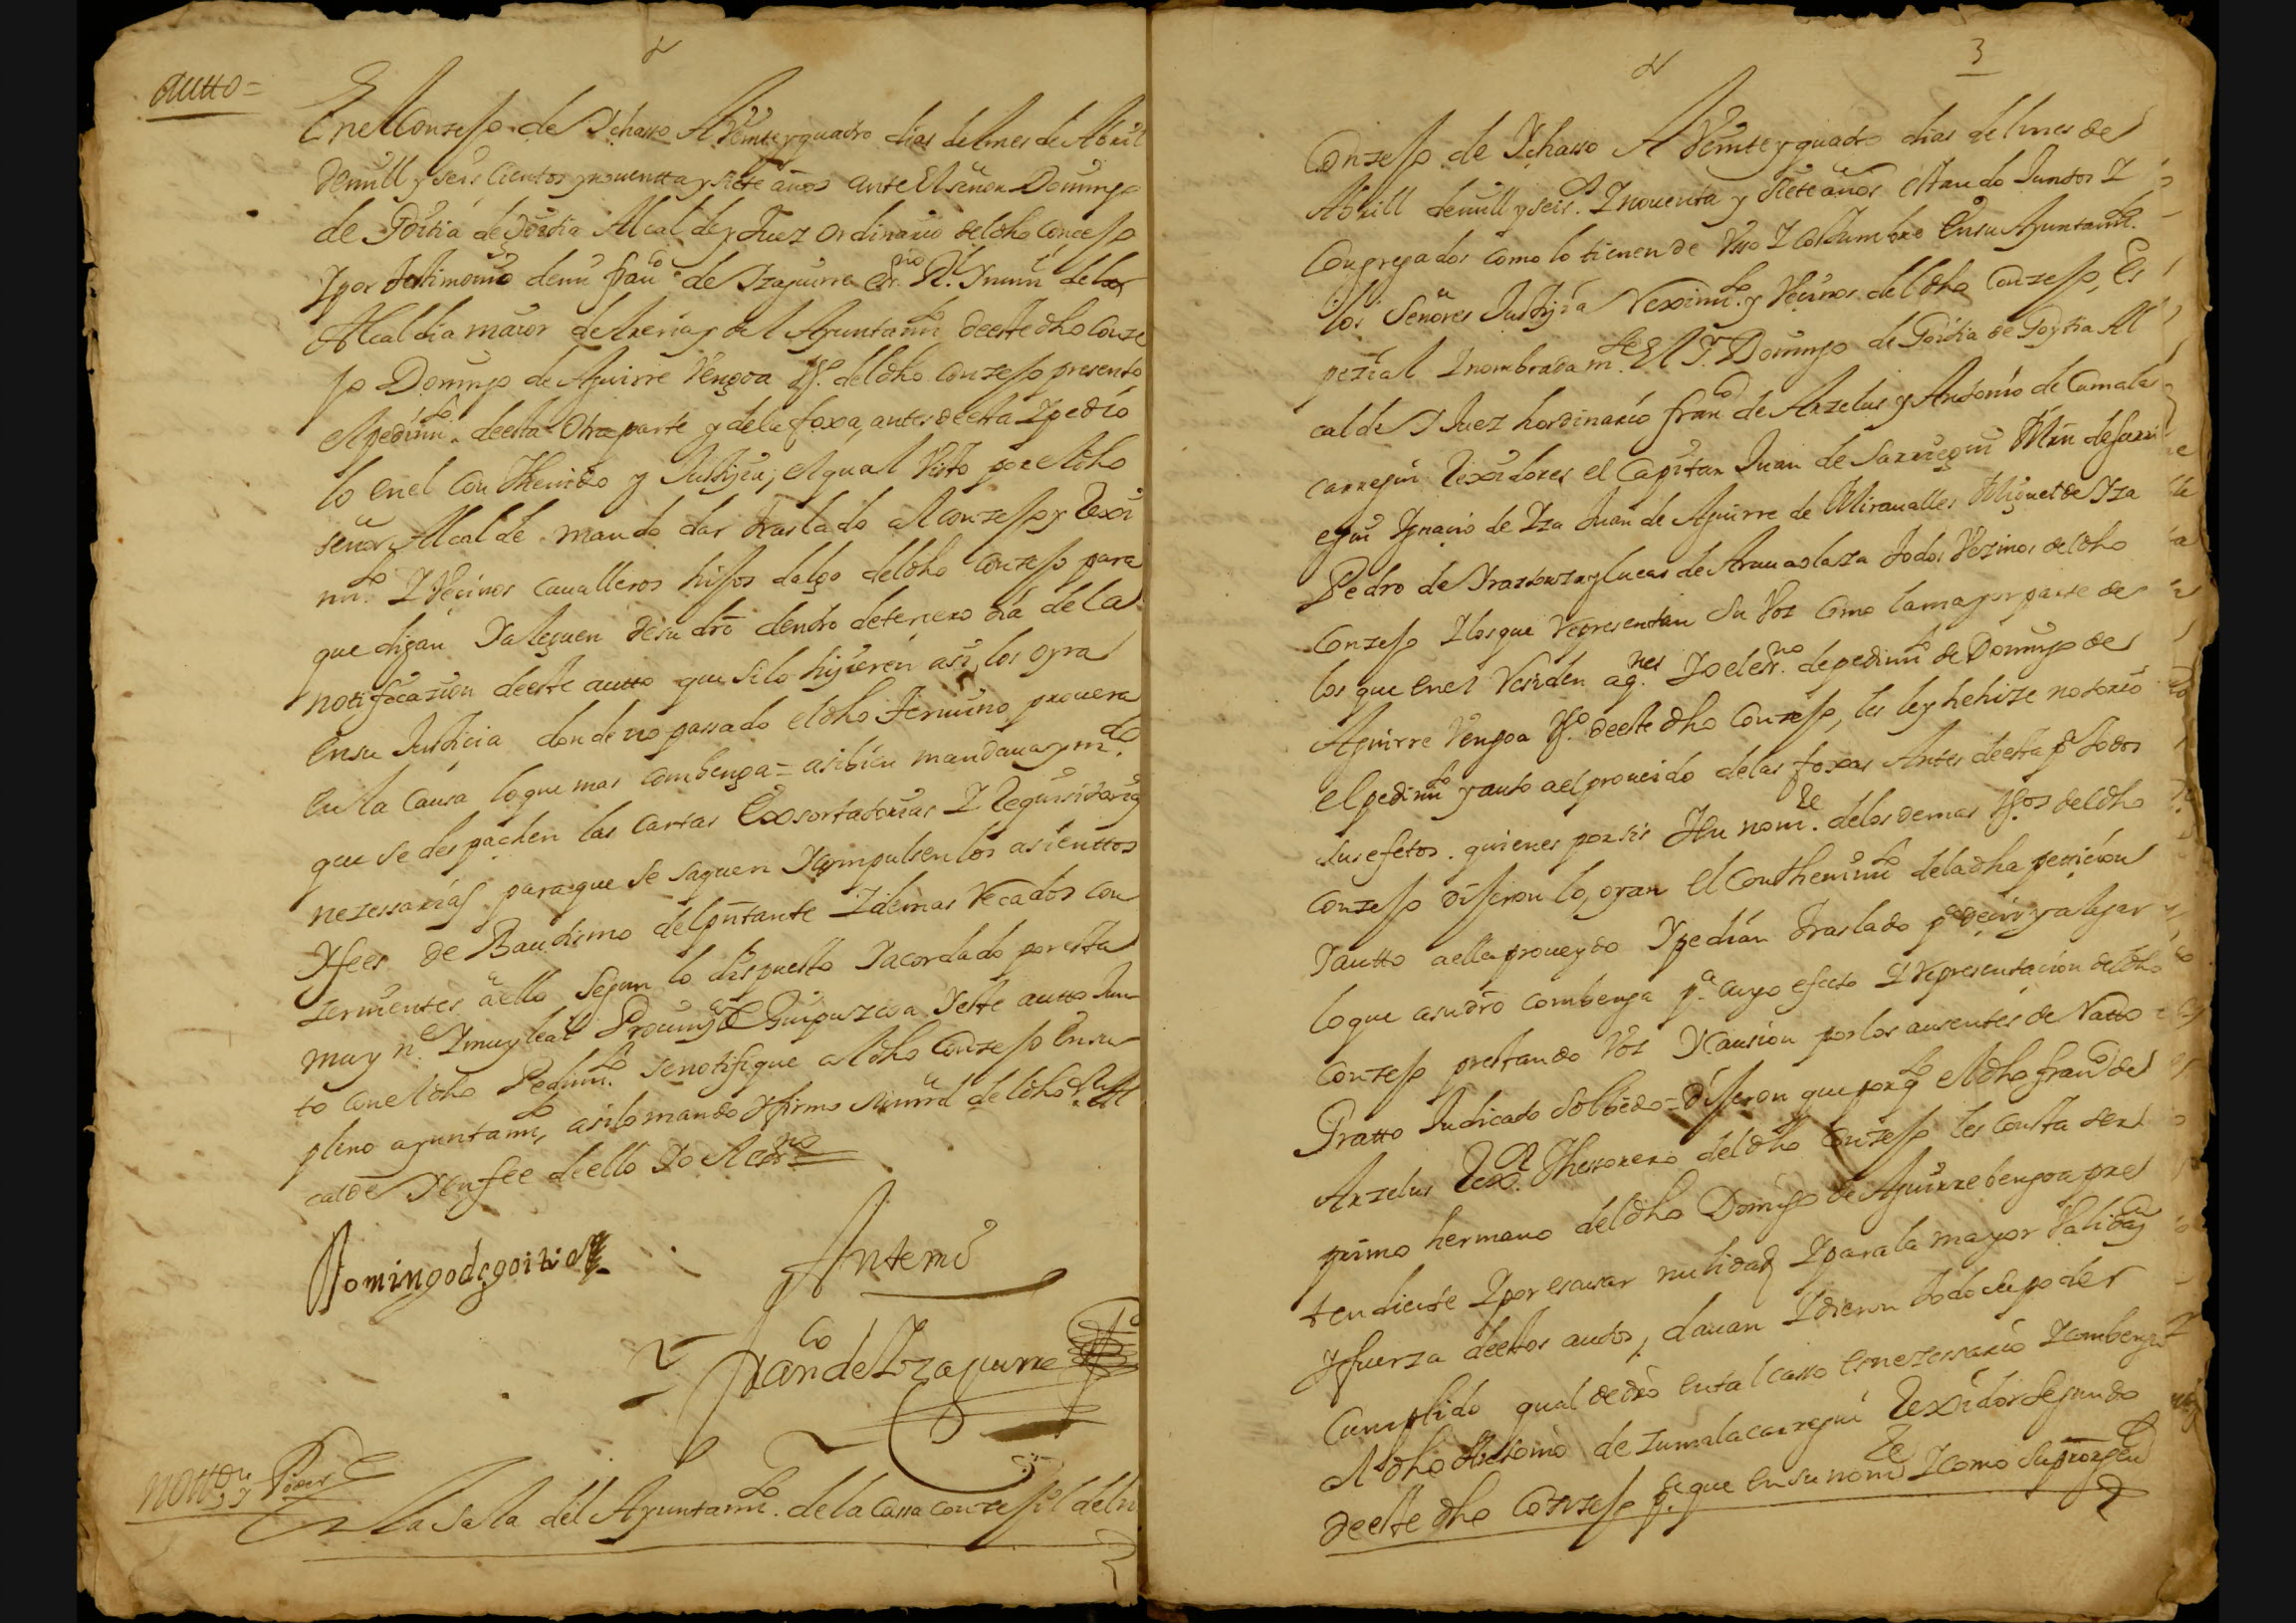 autto=
En el Conzejo de Ychasso A Veinte y quadro dias del mes de Abril
de mill y seis Cientos y nouentta y siete años ante El señor Domingo
de Goitia de Goitia Alcalde y Juez ordinario del dho Concejo
Y por testimonio de mi franco de Yzaguirre esrno Rl. Y num de la
Alcaldia maior de Areria y del Ayuntamto deeste dho Conze
jo Domingo de Aguirre Vengoa Vo. del dho Conzejo presento
el pedimto deesta otra parte y de la foxa, antes deesta Y pedio
lo en el Conthenido y Justiçia, el qual Visto por el dho
señor Alcalde mando dar traslado al Conzejo y Rexi
mto. Y Veçinos caualleros hijos dalgo del dho Conzejo para
que digan Y aleguen de su dro dentro de terzero dia de la
notificazion deeste autto que si lo hizieren asi, los oyra
en su Justicia donde no passado el dho Termino prouera
en la Caussa lo que mas Combenga = asibien mandaua y mdo.
que se despachen las cartas Exsortatorias Y Requisitorias
nezessarias para que se saquen Y compulsen los asienttos
Y fees de Bautismo del pntante Y demas Recados con
zernientes a ello segun lo dispuesto Y acordado por esta
muy ne. Y muy leal Prouinça de Guipuzcoa Y este autto Jun
to con el dho Pedimto. se notifique al dho Conzejo en su
pleno ayuntamto, asi lo mando Y firmo su mrd del dho Sr. Al
calde Y en fee de ello Yo el esno
Domingo de goitia
Ante mi
Franco de Yzaguirre
notton y Poder
En la Sala del Ayuntamto. de la Cassa conzejil del n
3
Conzejo de Ychasso A Veinte y quadro dias del mes de
Abrill de mill y seiss. Y nouenta y siete años estando Juntos Y
Congregados como lo tienen de Vsso Y Costumbre En su Ayuntamto.
los Señores Justiçia Reximto. y Veçinos del dho Conzejo, Es
pezial Y nombradamte. El Sr. Domingo de Goitia de Goytia Al
calde Y Juez hordinario franco de Arzelus y Antonio de Cumala
carregui Rexidores el Capitan Juan de Sarriegui Min de Sarri
egui Ygnacio de Yza Juan de Aguirre de Miraualles Miguel de Yza
Pedro de Yraztorza y Lucas de Aramaolaza todos Vezinos del dho
Conzejo Y los que representan su Voz Como la mayor parte de
los que en el residen a qnes Yo el esrno. de pedimto de Domingo de
Aguirre Vengoa Vo. deeste dho Conzejo, les ley he hize notorio
el pedimto y auto a el proueido de las foxas Antes deesta pa todos
sus efetos. quienes por sis Y en nomre. de los demas Vos del dho
Conzejo dijeron lo, oyan El Conthenimto de la dha peticion
Y autto a ella proueydo Y pedian traslado pa deçir y alegar
lo que a su dro combenga pa. cuyo efecto Y representacion del dho
Conzejo prestando Voz Y Caucion por los ausentes de Ratto
Gratto Judicado Solbiedo = dijeron que por q el dho franco de
Arzelus Rexor. Y thessorero del dho Conzejo les consta ser
primo hermano del dho Domingo de Aguirre bengoa pre
tendiente Y por escusar nulidad Y para la mayor Validaz
Y fuerza deestos autos, dauan Y dieron todo su poder
Cumplido qual de dro en tal casso es nezessario Y Combenga
Al dho Antonio de zumalacarregui Rexidor Segundo
deeste dho Conzejo pa. que en su nomre Y como su pror gen